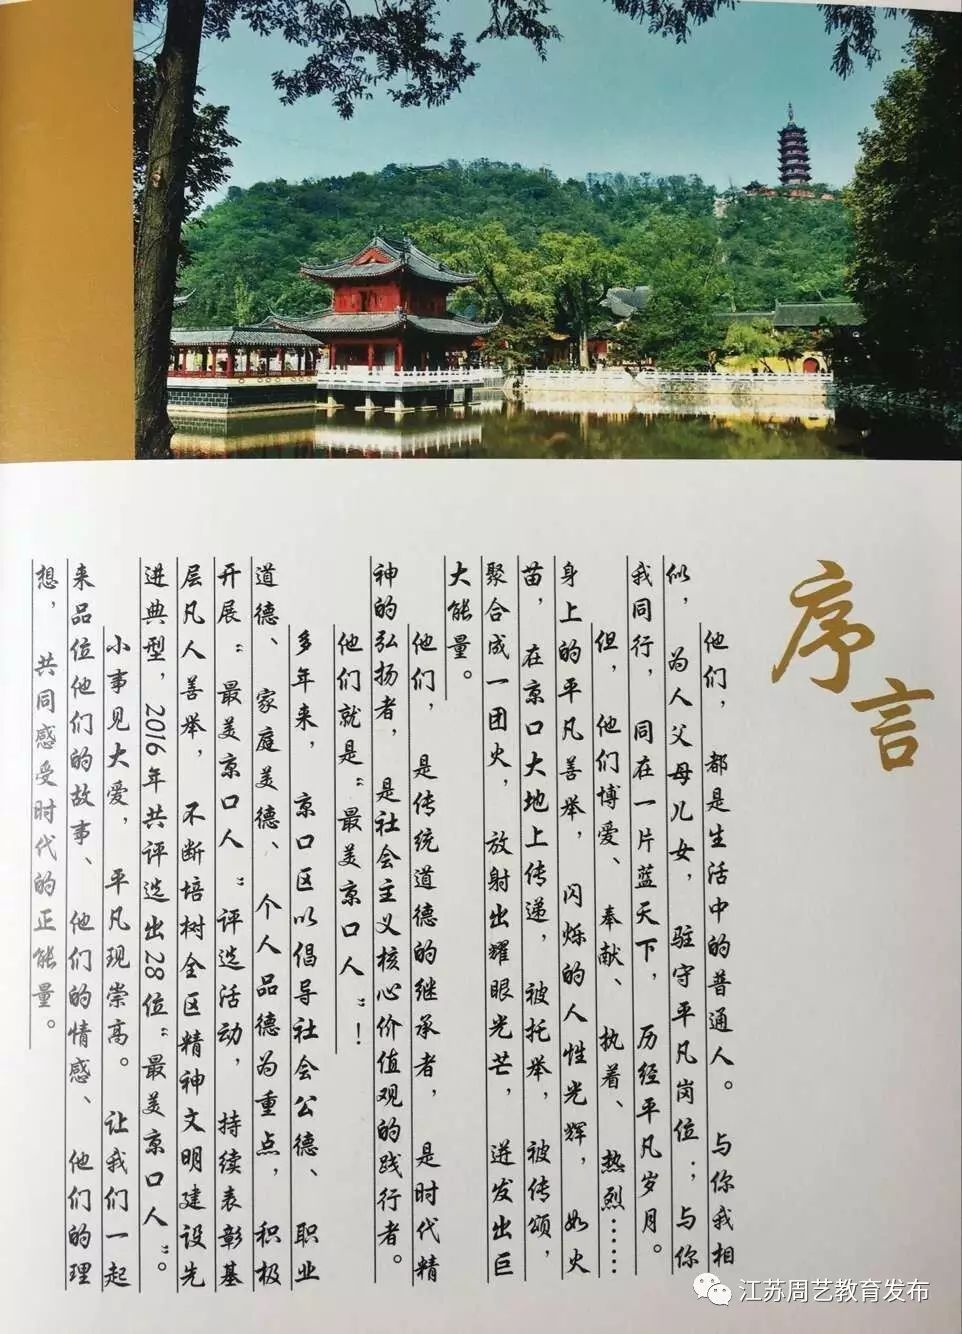 序言
他们，都是生活中的普通人。与你我相
似，为人父母儿女，驻守平凡岗位；与你
我同行，同在一片蓝天下，历经平凡岁月。
但，他们博爱、奉献、执着、热烈……
身上的平凡善举，闪烁的人性光辉，如火
苗，在京口大地上传递，被托举，被传颂，
聚合成一团火，放射出耀眼光芒，迸发出巨
大能量。
他们，是传统道德的继承者，是时代精
神的弘扬者，是社会主义核心价值观的践行者。
他们就是“最美京口人”！
多年来，京口区以倡导社会公德、职业
道德、家庭美德、个人品德为重点，积极
开展“最美京口人”评选活动，持续表彰基
层凡人善举，不断培树全区精神文明建设先
进典型，2016年共评选出28位“最美京口人”。
小事见大爱，平凡现崇高。让我们一起
来品位他们的故事、他们的情感、他们的理
想，共同感受时代的正能量。
江苏周艺教育发布